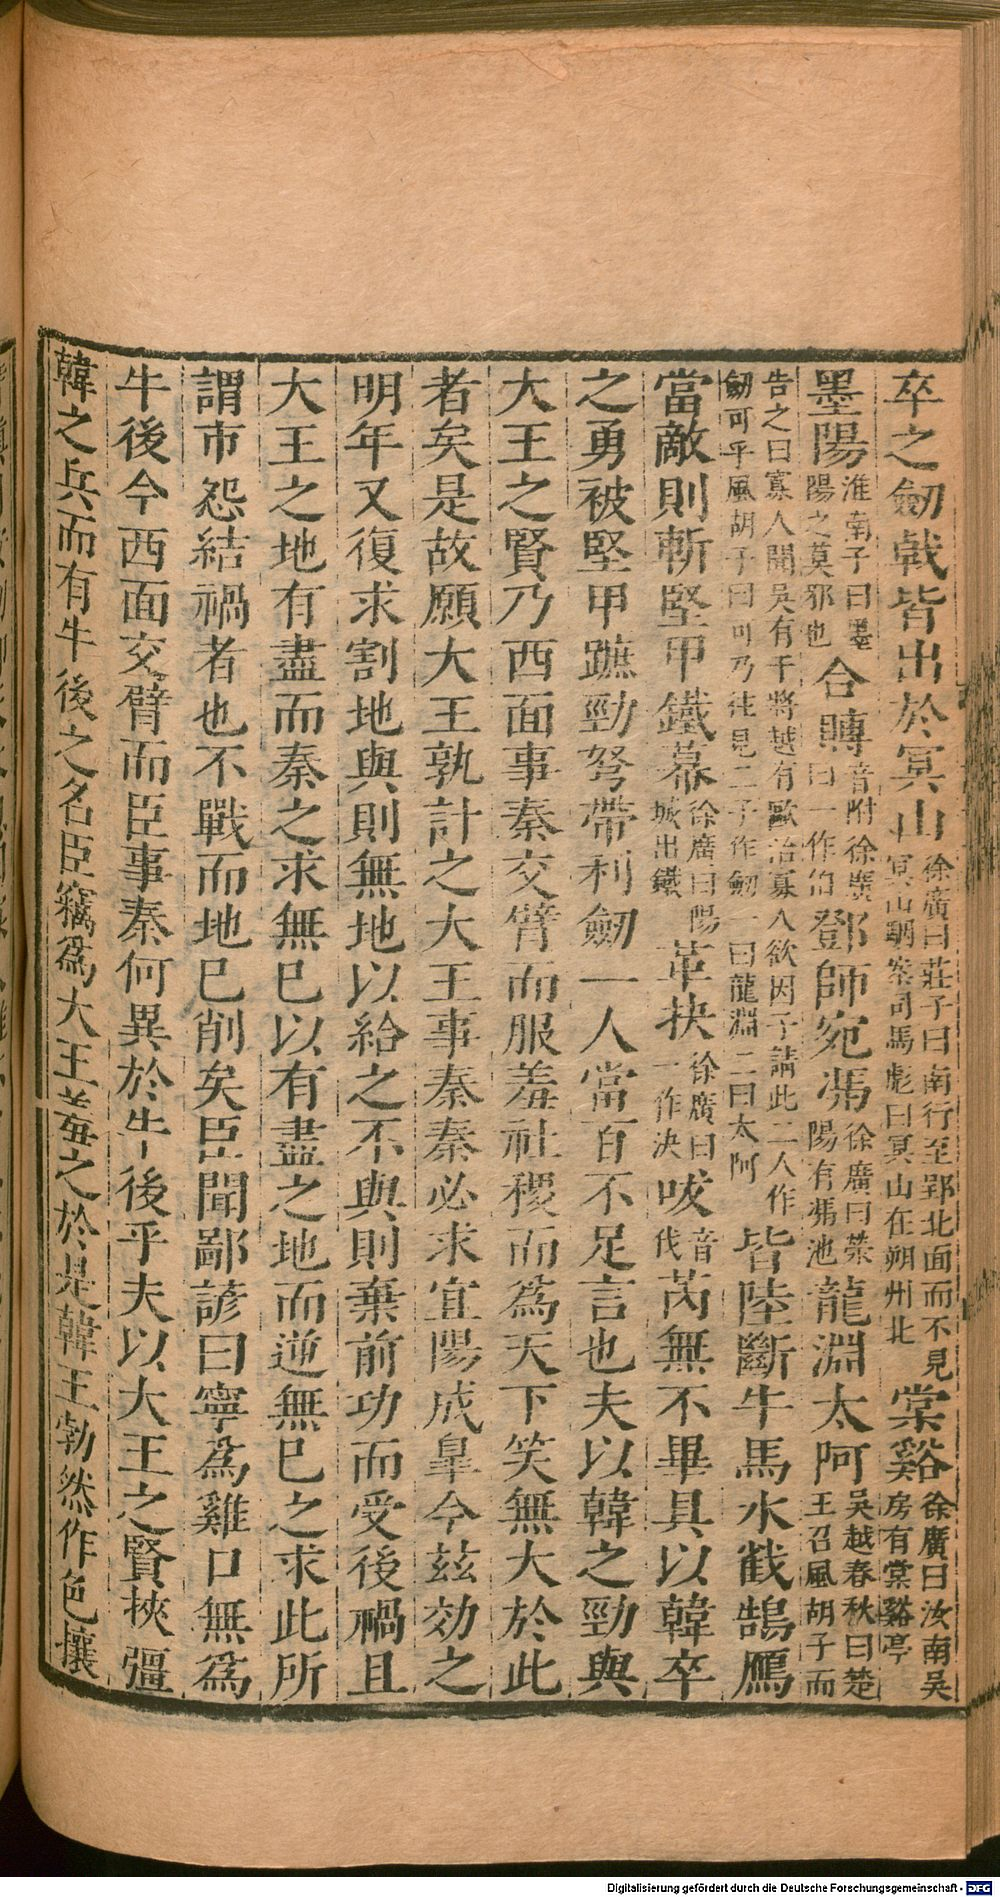 卒之劒戟皆出於冥山徐廣曰莊子曰南行至郢北面而不見冥山駰案司馬彪曰冥山在朔州北棠谿徐廣曰汝南吳房有棠谿亭
墨陽淮南子曰墨陽之莫邪也合賻音附徐廣曰一作伯鄧師宛馮徐廣曰滎陽有馮池龍淵太阿吳越春秋曰楚王召風胡子而
告之曰寡人聞吳有干將越有歐冶寡人欲因子請此二人作劒可乎風胡子曰可乃往見二子作劒一曰龍淵二曰太阿皆陸斷牛馬水截鵠鴈
當敵則斬堅甲鐵幕徐廣曰陽城出鐵革抉徐廣曰一作決㕹音伐芮無不畢具以韓卒
之勇被堅甲蹠勁弩帶利劒一人當百不足言也夫以韓之勁與
大王之賢乃西面事秦交臂而服羞社稷而爲天下笑無大於此
者矣是故願大王孰計之大王事秦秦必求宜陽成皐今茲効之
明年又復求割地與則無地以給之不與則棄前功而受後禍且
大王之地有盡而秦之求無已以有盡之地而逆無已之求此所
謂市怨結禍者也不戰而地已削矣臣聞鄙諺曰寧爲雞口無爲
牛後今西面交臂而臣事秦何異於牛後乎夫以大王之賢挾彊
韓之兵而有牛後之名臣竊爲大王羞之於是韓王勃然作色攘
Digitalisierung gefördert durch die Deutsche Forschungsgemeinschaft - DFG